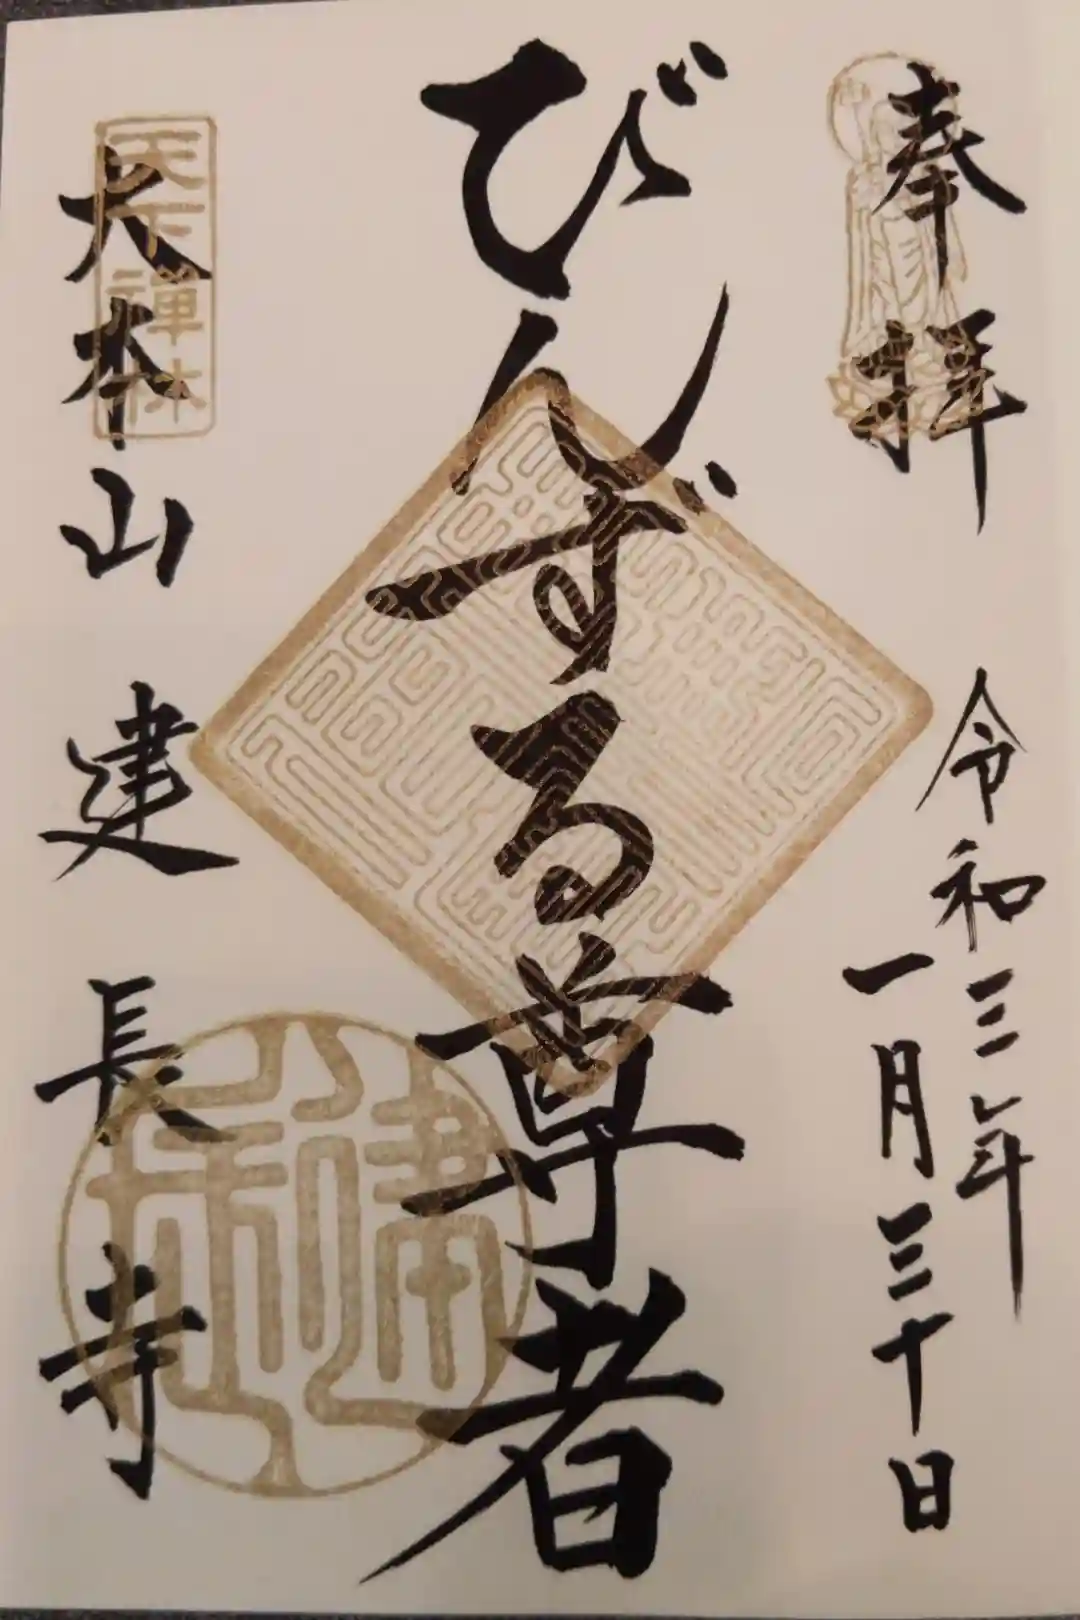 奉拝
令和三年
一月三十日
びんずる尊者
大本山建長寺
天下禅林